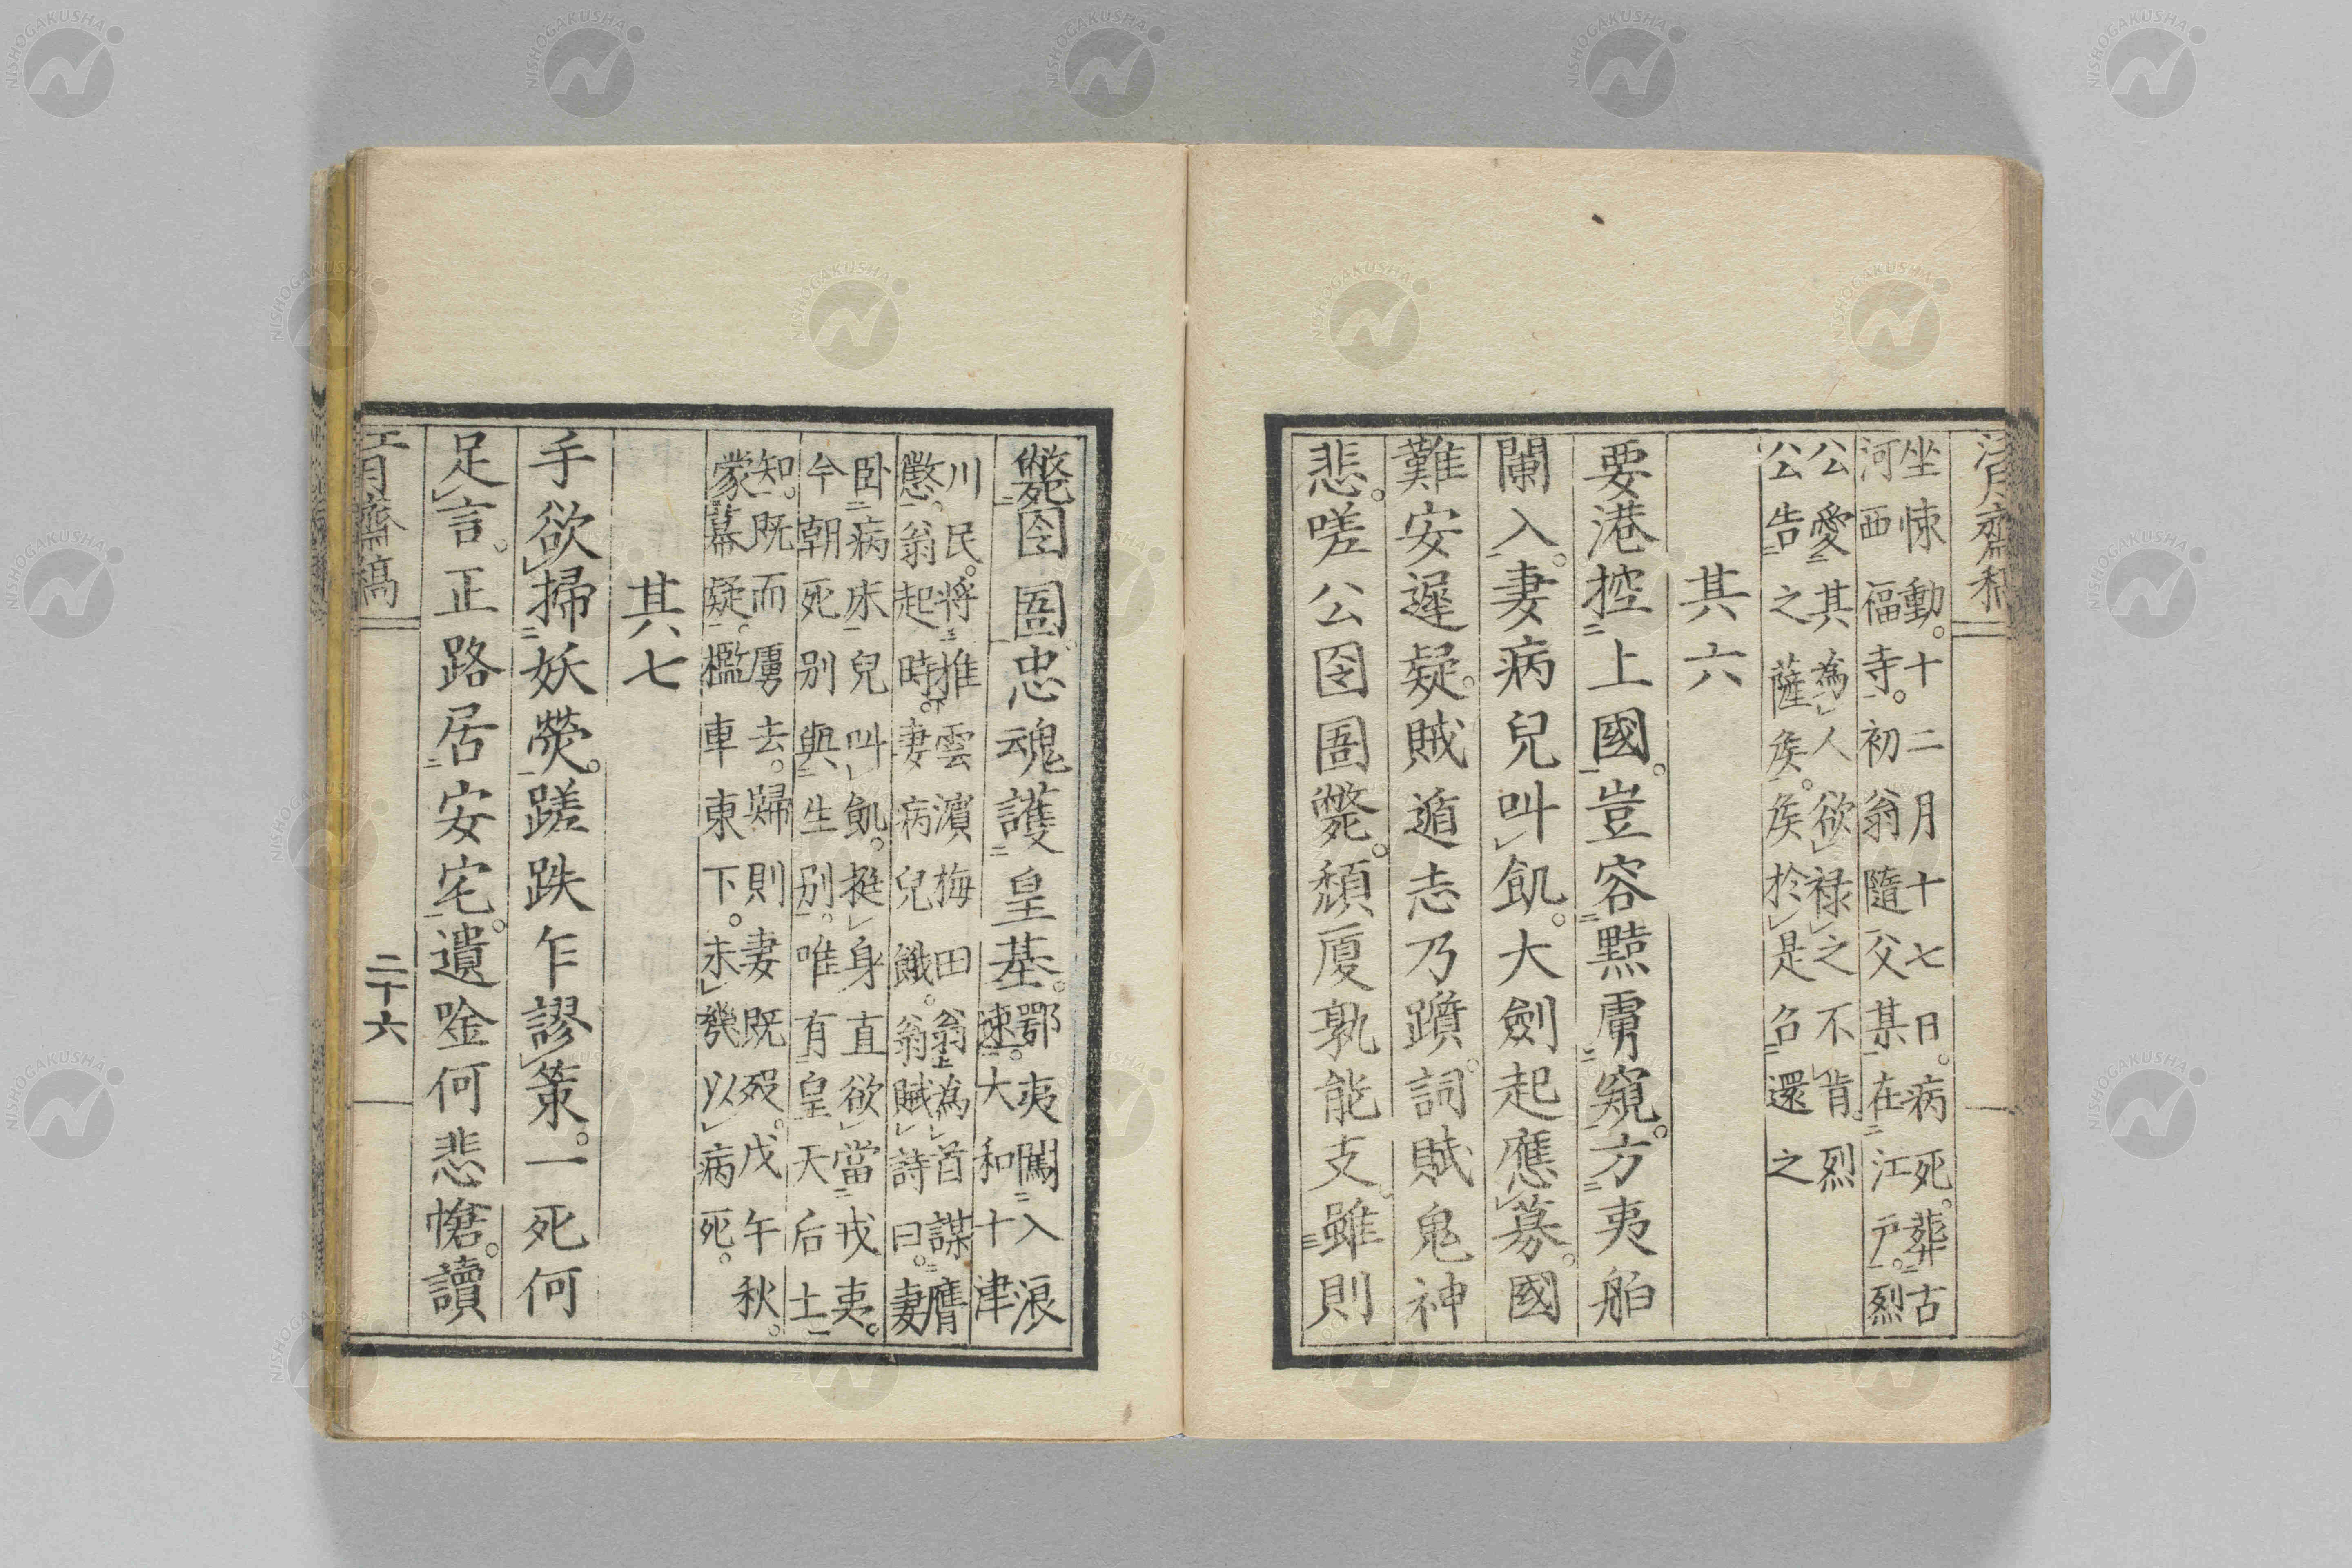 清齋稿
坐悚動。十二月十七日。病死。葬古
河西福寺。初翁隨父某在江戸。烈
公愛其為人欲祿之不肯。烈
公告之薩矦。矦於是召還之
其六
要港控上國。豈容黠虜窺。方夷舶
闌入。妻病兒叫飢。大劍起應募。國
難安遲疑。賊遁志乃躓。詞賦鬼神
悲。嗟公囹圄斃。頹廈孰能支。雖則
斃囹圄。忠魂護皇基。鄂夷闖入浪
速。大和十津
川民。將推雲濵梅田翁為首謀膺
懲。翁起時。妻病兒餓。翁賦詩曰。妻
臥病床兒叫飢。挺身直欲當戎夷。
今朝死別與生別。唯有皇天后土
知。既而虜去。歸則妻既歿。戊午秋。
蒙幕疑。檻車東下。未幾以病死。
其七
手欲掃妖熒。蹉跌乍謬策。一死何
足言。正路居安宅。遺唫何悲愴。讀
齋稿
二十六
NISHOGAKUSHA